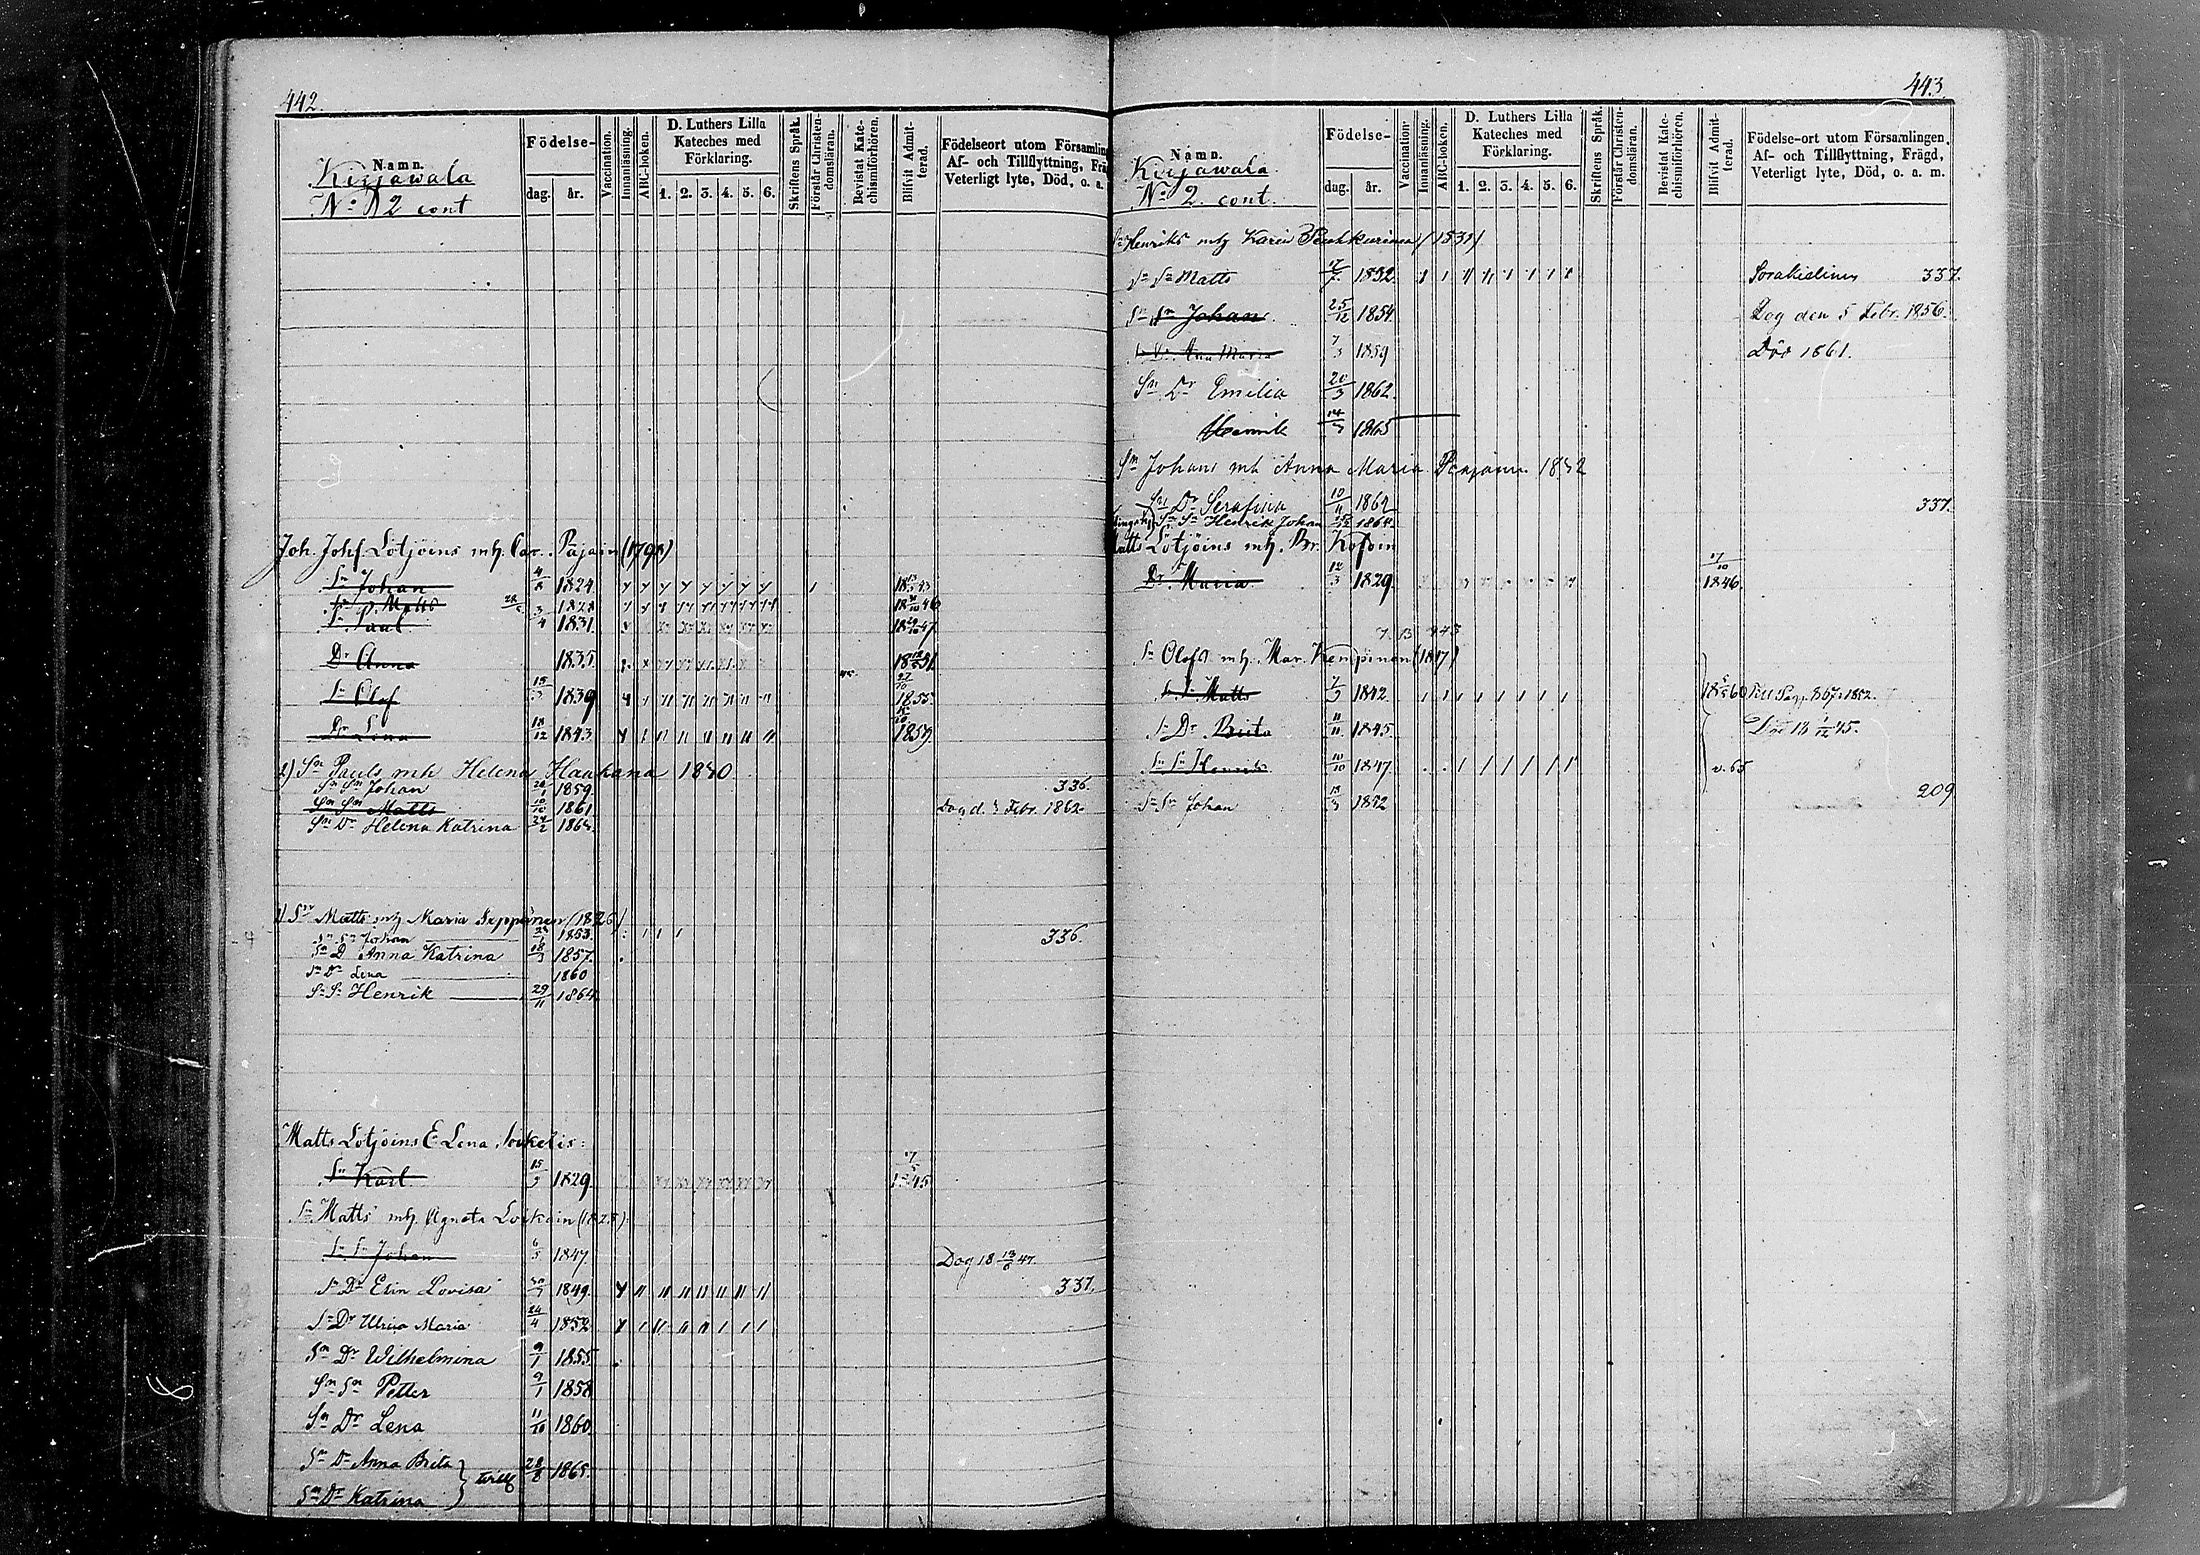 442.
Namn.
Kirjawala
No 2 cont
Födelse-
dag. år.
Vaccination.
Innanläsning.
ABC-boken.
D. Luthers Lilla
Kateches med
Förklaring.
1. 2. 3. 4. 5. 6.
Skriftens Språk.
Förstår Christen-
domsläran.
Bevistat Kate-
chismiförhören.
Blifvit Admit-
terad.
Födelseort utom Församlin
Af- och Tillflyttning,
Veterligt lyte, Död, o. a.
Joh. Johs Lötjöins mh. Car. Päjäin (1798)
Sn Johan 4/8 1824
Matts 1828
Sn Paul 3/4 1831.
Dr Anna 1835.
Sn Olof 15/3 1839 27/10 1855.
Dr Lena 18/12 1843 1859.
2) Sn Pauls mh Helena Haukana 1840
Sn Sn Johan 1859. 336.
Sn Sn Matts 1861 Dog d. 3 Febr. 1862.
Sn Dr Helena Katrina 24/2 1864.
1) Sn Matts mh Maria Seppänen (1826)
Sn Sn Johan 1853. 336.
Sn D Anna Katrina 18/3 1857.
Sn Dr Lena 1860
Sn Sn Henrik 29/11 1864
Matts Lötjöins E. Lena
Sn Karl 15/3 1829.
Sn Matts mh. Agneta Loikain (1828)
Sn Sn Johan 6/5 1847. Dog 18 13/6 47.
Sn Dr Elin Lovisa 1849. 337.
Sn Dr Ulrica Maria 24/4 1852
Sn Dr Wilhelmina 9/1 1855.
Sn Sn Petter 9/1 1858
Sn Dr Lena 11/10 1860
Sn Dr Anna Brita 28/8 1865.
Sn Dr Katrina
443.
Namn.
Kirjawala.
No 2. cont.
Födelse-
dag. år.
Vaccination.
Innanläsning.
ABC-boken.
D. Luthers Lilla
Kateches med
Förklaring.
1. 2. 3. 4. 5. 6.
Skriftens Språk.
Förstår Christen-
domsläran.
Bevistat Kate-
chismiförhören.
Blifvit Admit-
terad.
Födelse-ort utom Församlingen,
Af- och Tillflyttning, Frägd,
Veterligt lyte, Död, o. a. m.
Sn Henriks mh Karin
Sn Sn Matts 1852. 337.
Sn Sn Johan 25/12 1854. Dog den 5 Febr. 1856.
Sn Dr Ana Maria 7/3 1859 Död 1861.
Sn Dr Emilia 20/3 1862.
Henrik 1865
Sn Johans mh Anna Maria
Sn Dr Serafina 10/4 1862 337.
Sn Sn Henrik Johan 1864.
Matts Lötjöins mh. Br. Kosoin
Dr Maria 12/3 1829 17/10 1846.
Sn Olofs mh. Mar. Kemppinen (1817)
Sn Sn Matts 1842
Sn Dr Brita 11/11 1845. Död 18 1/12 45.
Sn Sn Henrik 10/10 1847.
Sn Sn Johan 1852 209